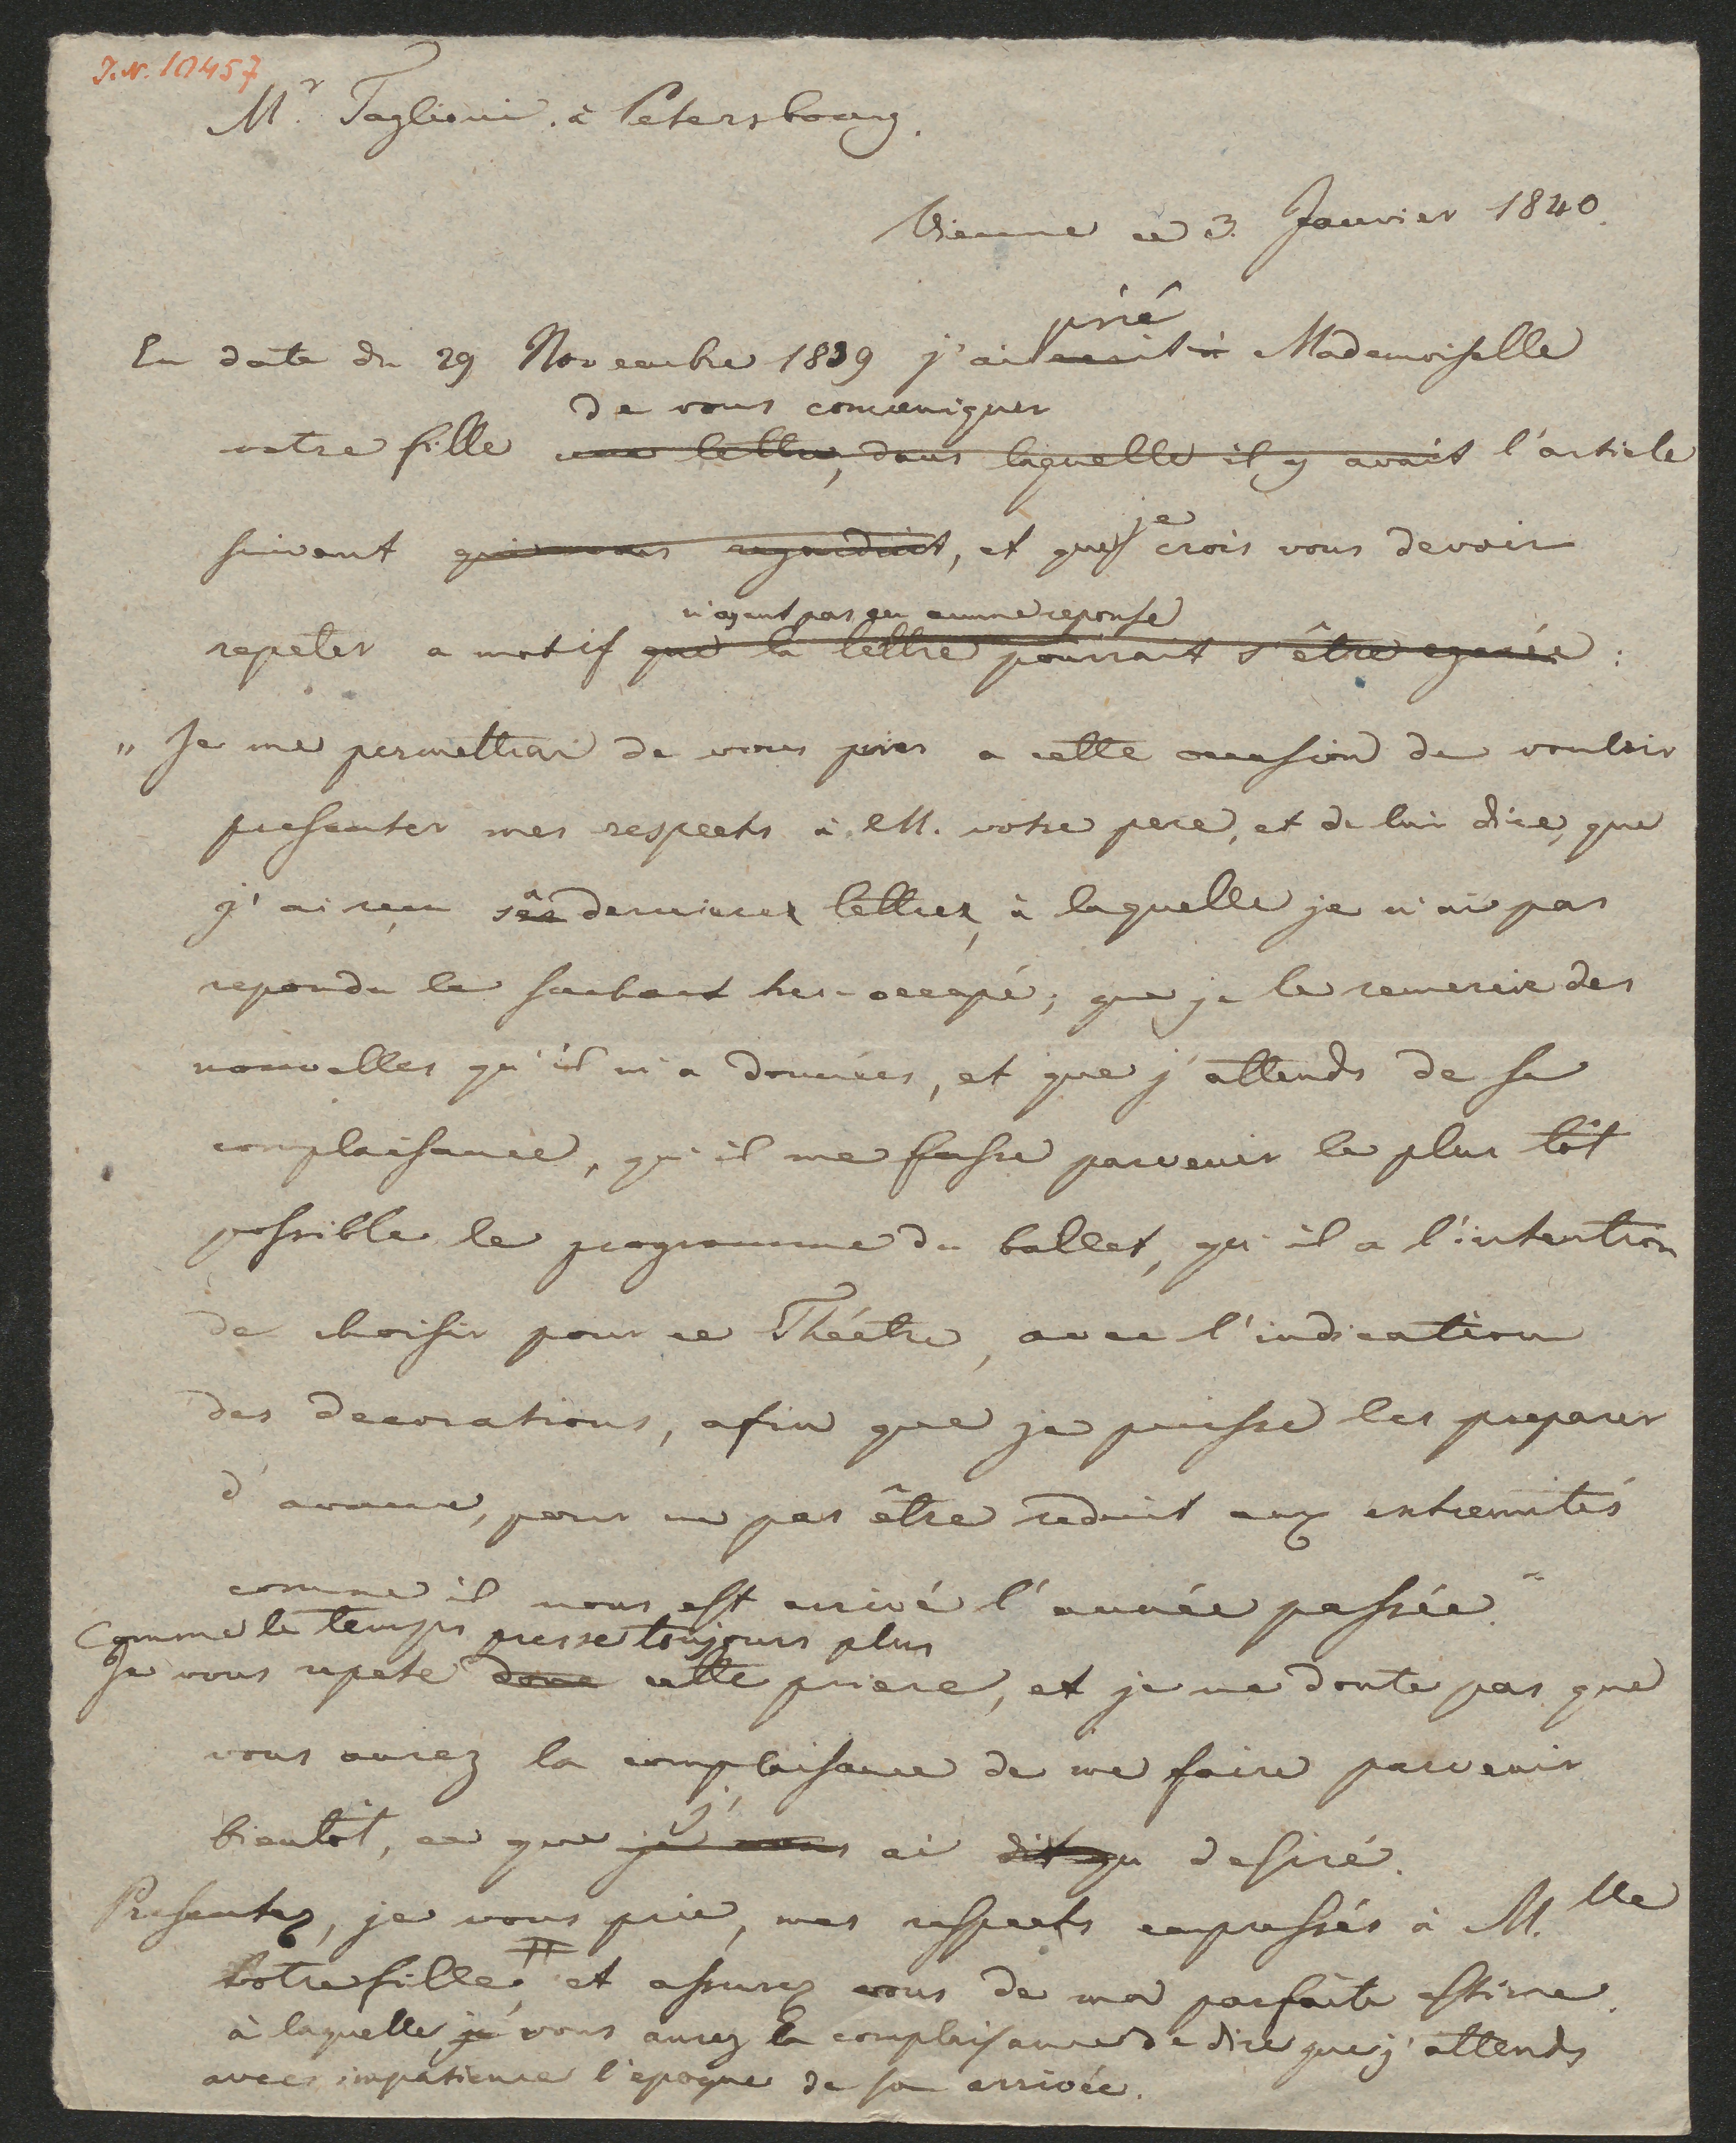 J.N. 10457
Mr. Taglioni à Petersbourg.
Vienne ce 3. Janvier 1840.
prié
En date du 29 Novembre 1839 j'ai ecrit à Mademoiselle
de vous comuniquer
votre fille une lettre, dans laquelle il y avait l'article
je
suivant qui vous regardait, et que crois vous devoir
n'ayant pas eu aucune reponse
repeter a motif que la lettre pourrait s'être egarée:
„Je me permettrai de vous prier a cette occasion de vouloir
presenter mes respects à M. votre pere, et de lui dire, que
j'ai reçu sa derniere lettre, à laquelle je n'ai pas
repondu le sachant tres-occupé; que je le remercie des
nouvelles qu'il m'a données, et que j'attends de sa
complaisance, qu'il me fasse parvenir le plus tôt
possible le programme du ballet, qu'il a l'intention
de choisir pour ce Théétre, avec l'indication
des decorations, afin que je puisse les preparer
d'avance, pour ne pas être reduit aux extremités
comme il nous est arrivé l'année passée."
Comme le temps presse toujours plus
Je vous repete donc cette priere, et je ne doute pas que
vous aurez la complaisance de me faire parvenir
j'
bientôt, ce que je vous ai dit qu desiré.
Presentez, je vous prie, mes respects empressés à M.lle
votre fille, # et assurez vous de ma parfaite estime.
à laquelle je vous aurez la complaisance de dire que j'attends
avec impatience l'epoque de son arrivée.